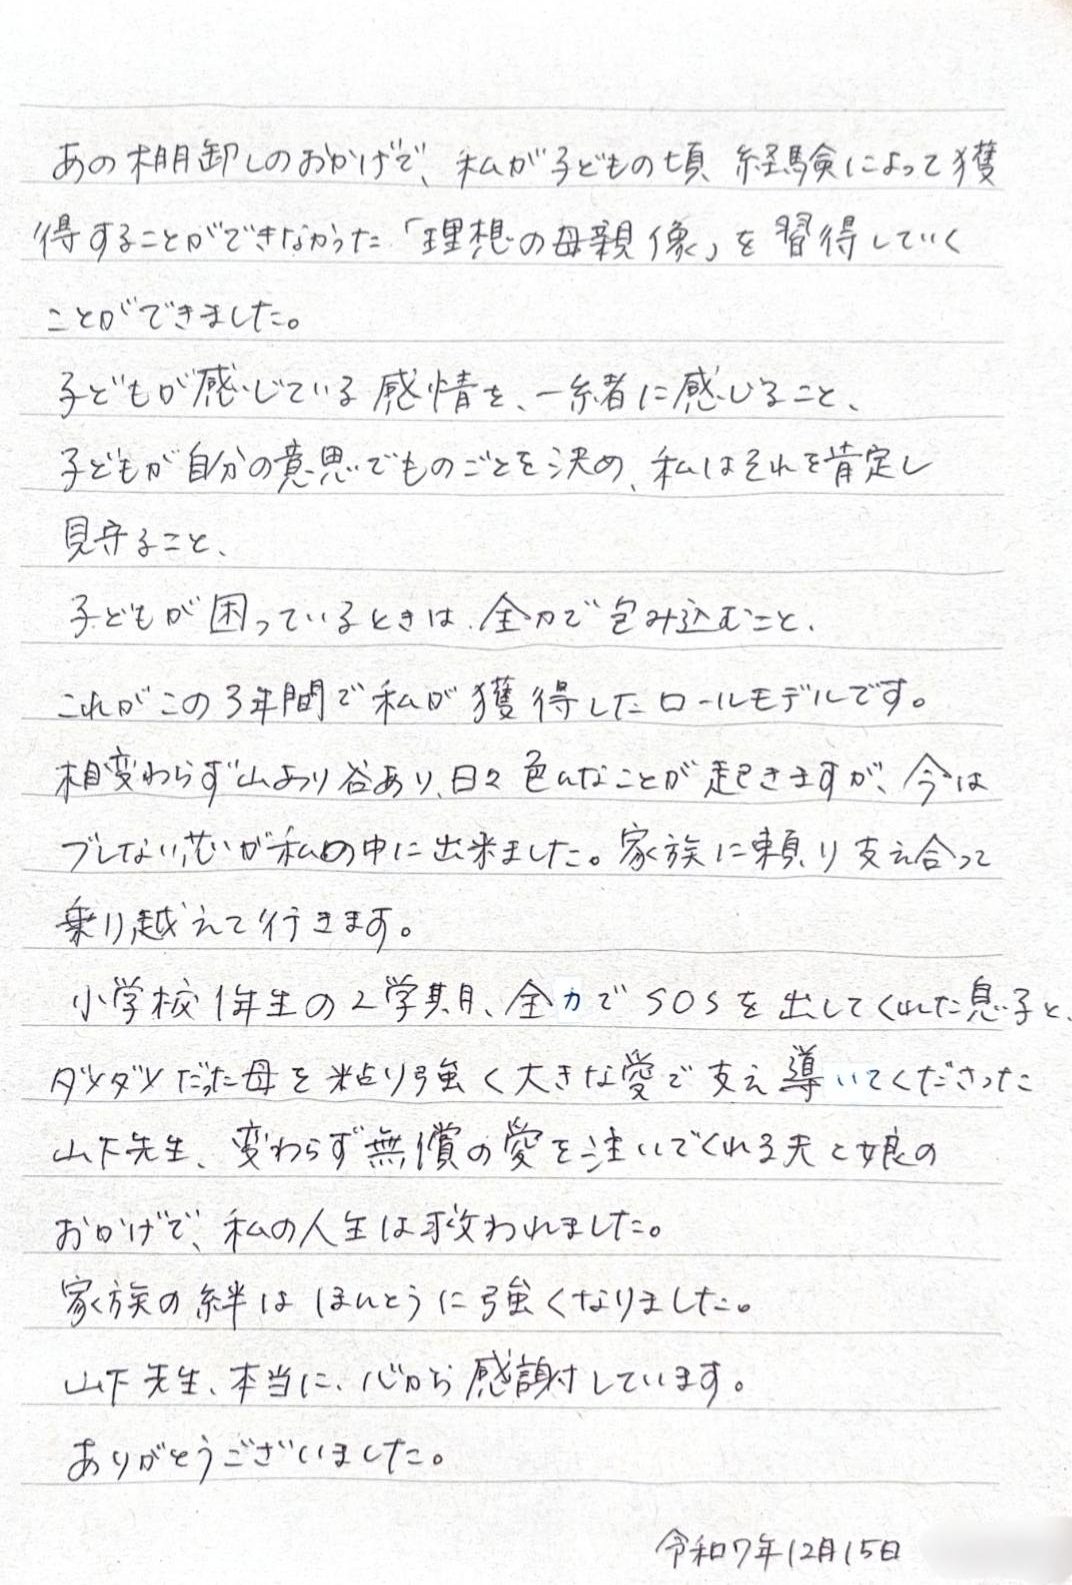 あの棚卸しのおかげで、私が子どもの頃 経験によって獲
得することができなかった「理想の母親像」を 習得していく
ことができました。
子どもが感じている感情を、一緒に感じること、
子どもが自分の意思でものごとを決め、私はそれを肯定し
見守ること、
子どもが困っているときは、全力で包み込むこと、
これがこの3年間で私が獲得したロールモデルです。
相変わらず山あり谷あり、日々色んなことが起きますが、今は
ブレない芯が私の中に出来ました。家族に頼り支え合って
乗り越えて行きます。
小学校1年生の2学期、全力でSOSを出してくれた息子と、
ダメダメだった母を粘り強く大きな愛で支え導いてくださった
山下先生、変わらず無償の愛を注いでくれる夫と娘の
おかげで、私の人生は救われました。
家族の絆はほんとうに強くなりました。
山下先生、本当に、心から感謝しています。
ありがとうございました。
令和7年12月15日